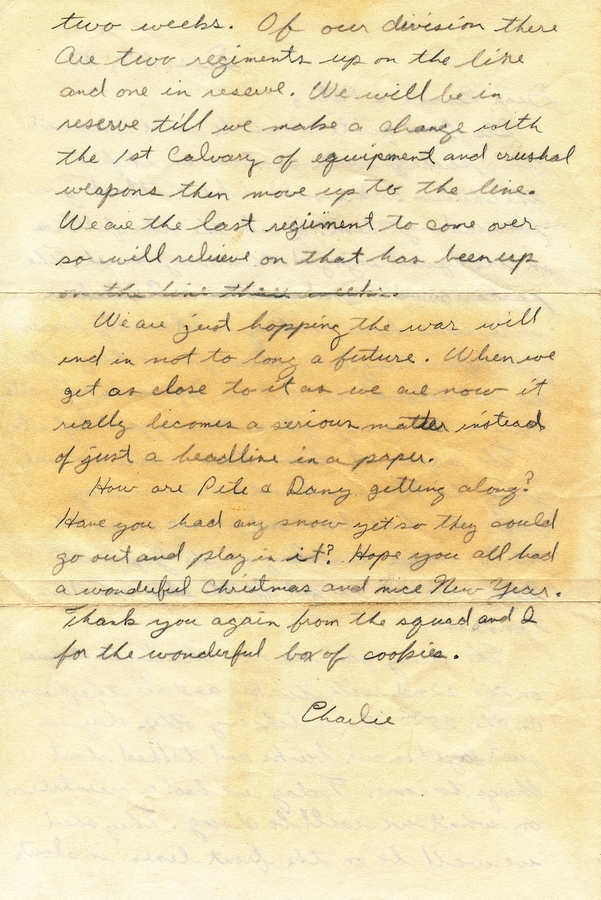 two weeks. Of our division there
Are two regiments up on the line
and one in reserve. We will be in
reserve till we make a change with
the 1st Calvary of equipment and crushal
weapons then move up to the line.
We are the last regiment to come over
so will relieve on that has been up
on the line three weeks.
We are just hopping the war will
end in not to long a future. When we
get as close to it as we are now it
really becomes a serious matter instead
of just a headline in a paper.
How are Pete & Dany getting along?
Have you had any snow yet so they could
go out and play in it? Hope you all had
a wonderful Christmas and nice New Year.
Thank you again from the squad and I
for the wonderful box of cookies.
Charlie